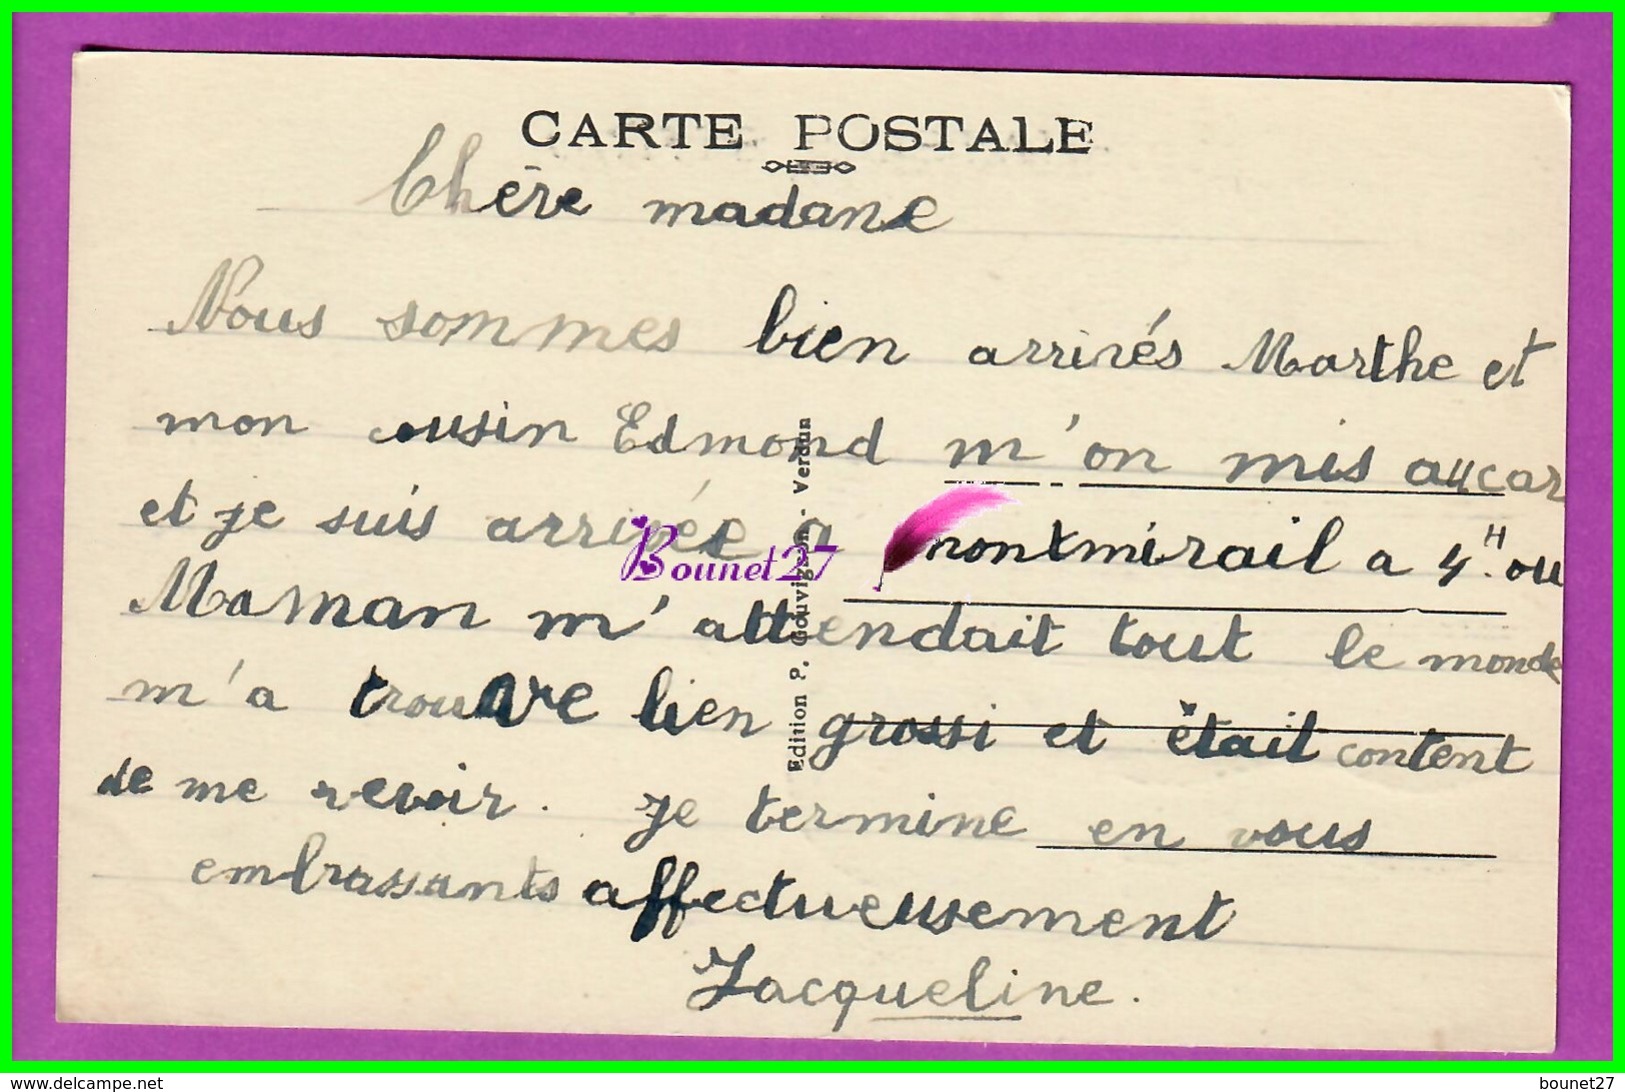 CARTE POSTALE
Chère madane
Nous sommes bien arrivés Marthe et
mon cousin Edmond m'on mis au car
et je suis arrivée a montmirail a 4H. ou
Maman m'attendait tout le monde
m'a trouve bien grossi et était content
de me revoir. Je termine en vous
embrassants affectueusement
Jacqueline.
Edition P. Gouvignon - Verdun
Bounet27
http://www.delcampe.net
bounet27